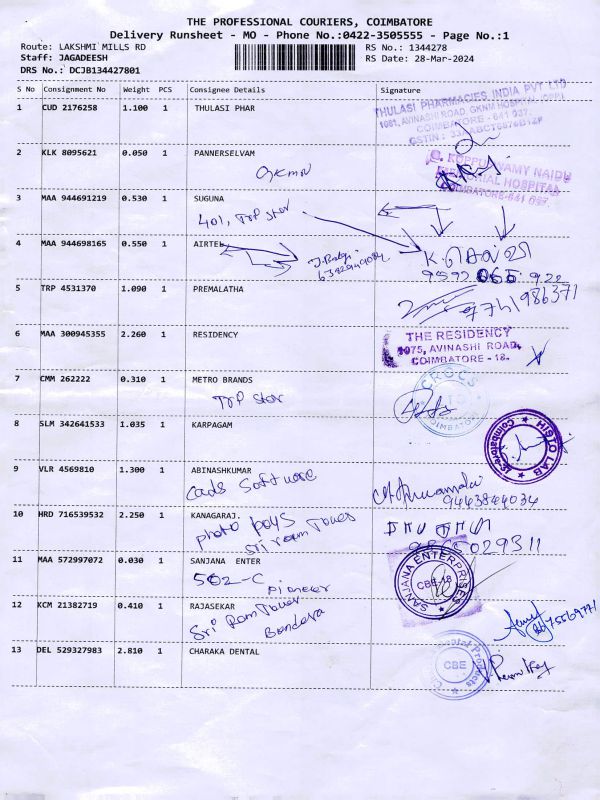 THE PROFESSIONAL COURIERS, COIMBATORE
Delivery Runsheet - MO - Phone No.:0422-3505555 - Page No.:1
Route: LAKSHMI MILLS RD
Staff: JAGADEESH
DRS No.: DCJB134427801
RS No.: 1344278
RS Date: 28-Mar-2024
S No Consignment No Weight PCS Consignee Details Signature
1 CUD 2176258 1.100 1 THULASI PHAR
THULASI PHARMACIES INDIA PVT LTD
COIMBATORE - 641 037.
2 KLK 8095621 0.050 1 PANNERSELVAM
G. KUPPUSWAMY NAIDU
MEMORIAL HOSPITAL
COIMBATORE-641 037.
3 MAA 944691219 0.530 1 SUGUNA
401, TRP Stor
4 MAA 944698165 0.550 1 AIRTEL
5 TRP 4531370 1.090 1 PREMALATHA
6 MAA 300945355 2.260 1 RESIDENCY
THE RESIDENCY
1075, AVINASHI ROAD,
COIMBATORE - 18.
7 CMM 262222 0.310 1 METRO BRANDS
TRP Stor
CROCS
COIMBATORE
8 SLM 342641533 1.035 1 KARPAGAM
HISTO LAB
Coimbatore
9 VLR 4569810 1.300 1 ABINASHKUMAR
Cads Software
9443844034
10 HRD 716539532 2.250 1 KANAGARAJ
photo boys
Sri ram Tower
11 MAA 572997072 0.030 1 SANJANA ENTER
502-C Pioneer
SANJANA ENTERPRISES
CBE-18
12 KCM 21382719 0.410 1 RAJASEKAR
Sri Ram Tower
Bandara
13 DEL 529327983 2.810 1 CHARAKA DENTAL
CBE